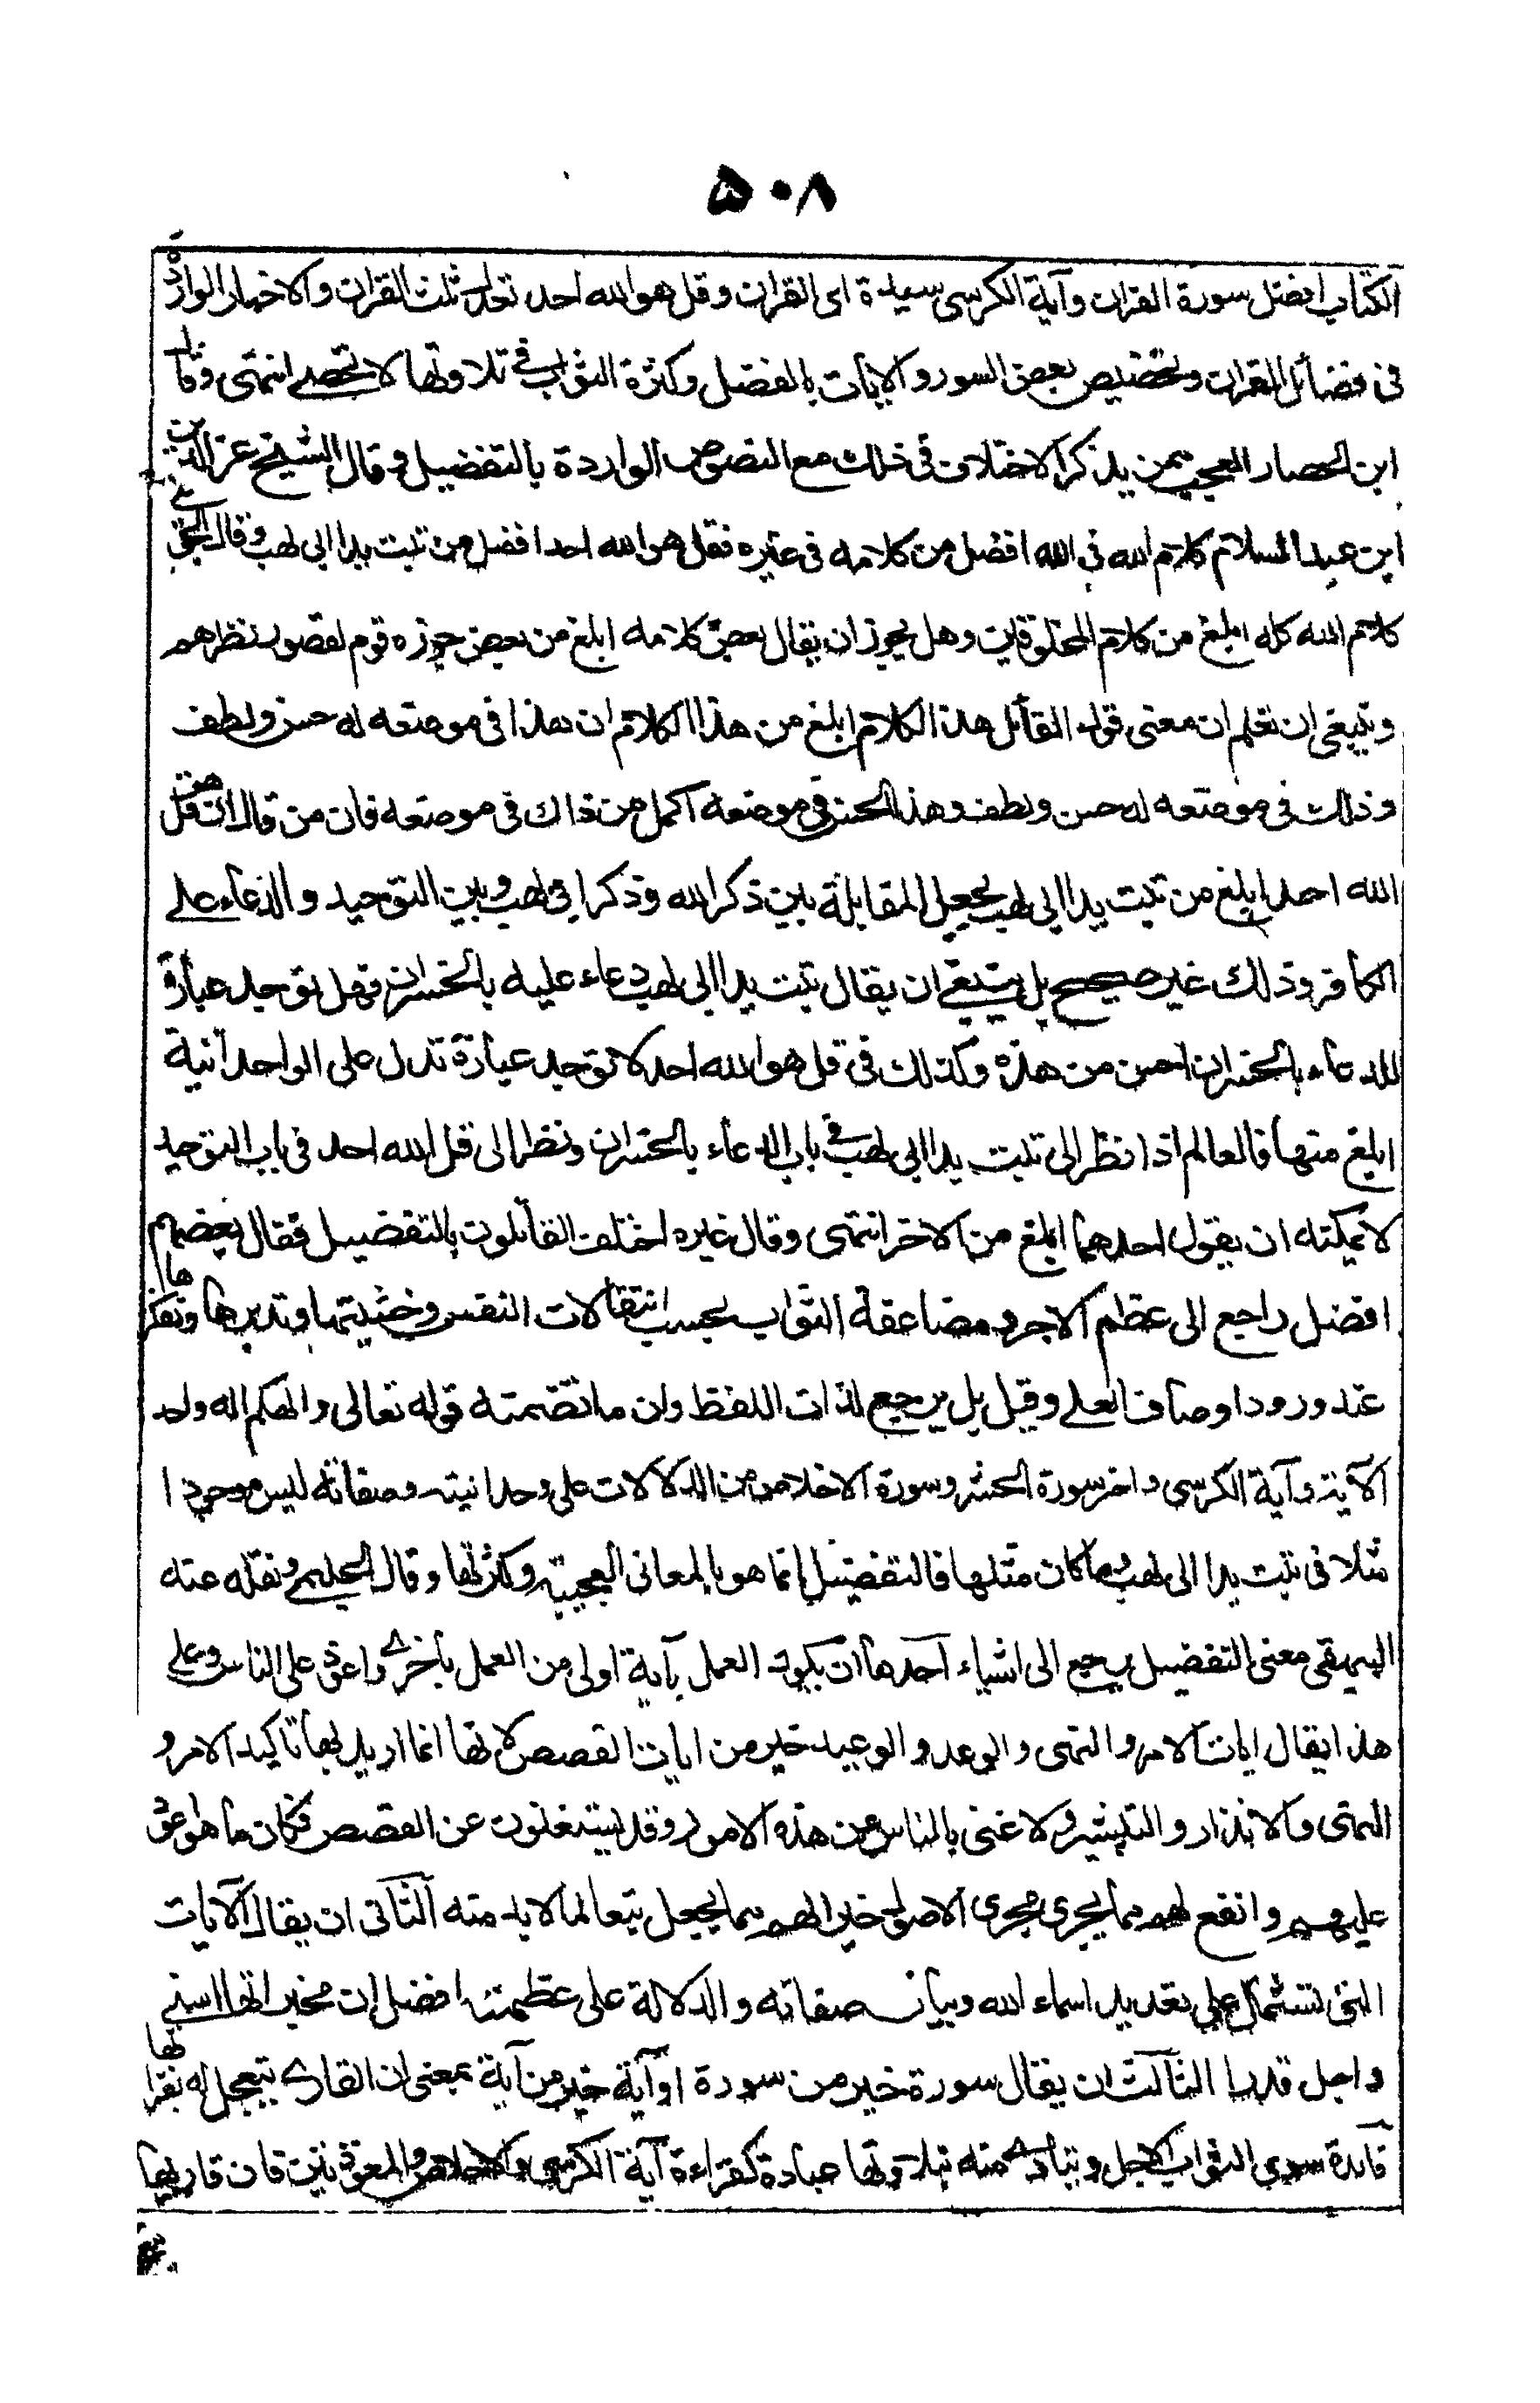 ۵۰۸
الكتاب افضل سورة القران وآية الكرسى سيدة اى القران وقل هو الله احد تعدل ثلث القران والاخبار الواردة
فى فضائل القران وتخصيص بعض السور والايات بالفضل وكثرة الثواب فى تلاوتها لا تحصى انتهى وقال
ابن الحصار العجب ممن يذكر الاختلاف فى ذلك مع النصوص الواردة بالتفضيل وقال الشيخ عز الدين
ابن عبد السلام كلام الله فى الله افضل من كلامه فى غيره فقل هو الله احد افضل من تبت يدا ابى لهب وقال الخويى
كلام الله كله ابلغ من كلام المخلوقين وهل يجوز ان يقال بعض كلامه ابلغ من بعض جوزه قوم لقصور نظرهم
وينبغى ان تعلم ان معنى قول القائل هذا الكلام ابلغ من هذا الكلام ان هذا فى موضعه له حسن ولطف
وذلك فى موضعه له حسن ولطف وهذا الحسن فى موضعه اكمل من ذاك فى موضعه فان من قال ان قل هو
الله احد ابلغ من تبت يدا ابى لهب يجعل المقابلة بين ذكر الله وذكر ابى لهب وبين التوحيد والدعاء على
الكافر وذلك غير صحيح بل ينبغى ان يقال تبت يدا ابى لهب دعاء عليه بالخسران فهل توجد عبارة
للدعاء بالخسران احسن من هذه وكذلك فى قل هو الله احد لا توجد عبارة تدل على الواحدانية
ابلغ منها فالعالم اذا نظر الى تبت يدا ابى لهب فى باب الدعاء بالخسران ونظر الى قل الله احد فى باب التوحيد
لا يمكنه ان يقول احدهما ابلغ من الاخر انتهى وقال غيره اختلف القائلون بالتفضيل فقال بعضهم
افضل راجع الى عظم الاجر ومضاعفة الثواب بحسب انتقالات النفس وخشيتها وتدبرها وتفكرها
عند ورود اوصاف العلى وقيل بل يرجع لذات اللفظ وان ما تضمنه قوله تعالى والهكم اله واحد
الآية وآية الكرسى واخر سورة الحشر وسورة الاخلاص من الدلالات على وحدانيته وصفاته ليس موجودا
مثلا فى تبت يدا ابى لهب وما كان مثلها فالتفضيل انما هو بالمعانى العجيبة وكثرتها وقال الحليمى ونقله عنه
البيهقى معنى التفضيل يرجع الى اشياء احدها ان يكون العمل بآية اولى من العمل باخرى واعود على الناس وعلى
هذا يقال ايات الامر والنهى والوعد والوعيد خير من ايات القصص لانها انما اريد بها تاكيد الامر و
النهى والانذار والتبشير ولا غنى بالناس عن هذه الامور وقد يستغنون عن القصص فكان ما هو اعود
عليهم وانفع لهم مما يجرى مجرى الاصول خيرا لهم مما يجعل تبعا لما لا بد منه الثانى ان يقال الآيات
التى تشتمل على تعديد اسماء الله وبيان صفاته والدلالة على عظمته افضل ان مخبراتها اسنى
واجل قدرا الثالث ان يقال سورة خير من سورة او آية خير من آية بمعنى ان القارى يتعجل له بقراءتها
فائدة سوى الثواب الاجل ويتادى منه بتلاوتها عبادة كقراءة آية الكرسى والاخلاص والمعوذتين فان قاريها